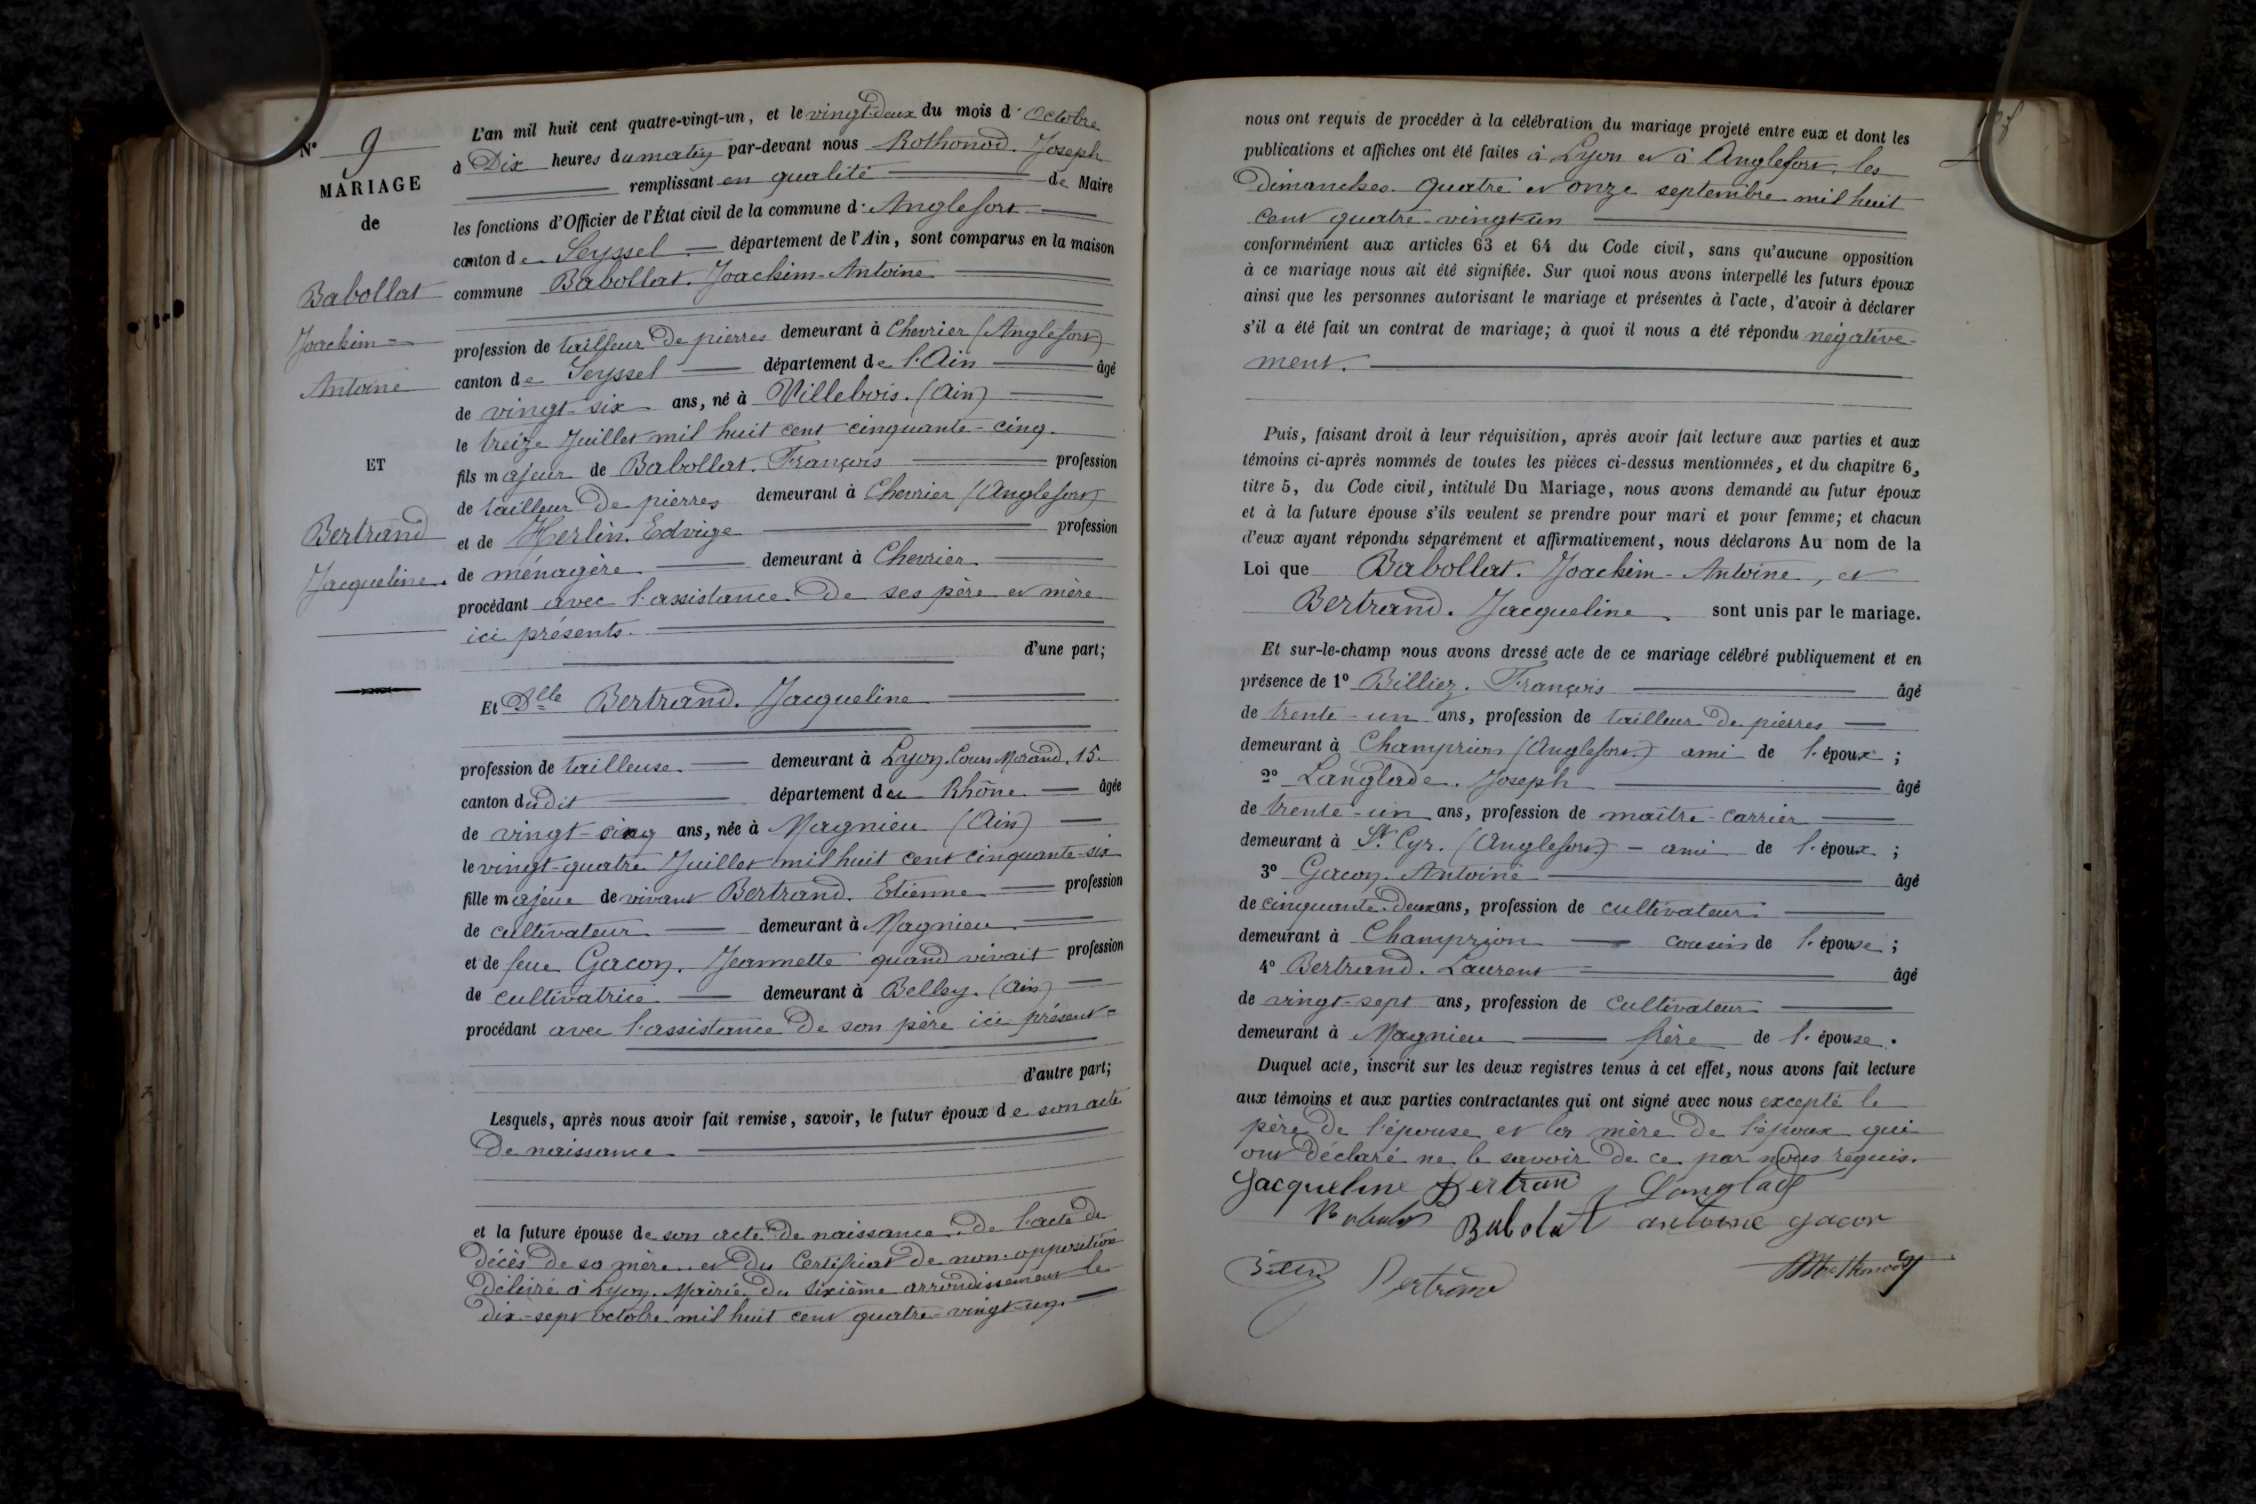 N° 9
MARIAGE
de
Babollat
Joachim-
Antoine
ET
Bertrand
Jacqueline.
L'an mil huit cent quatre-vingt-un, et le vingt-deux du mois d'Octobre
à Dix heures du matin par-devant nous Rothonod. Joseph
remplissant en qualité de Maire
les fonctions d'Officier de l'État civil de la commune d'Anglefort
canton de Seyssel département de l'Ain, sont comparus en la maison
commune Babollat. Joachim-Antoine
profession de tailleur de pierres demeurant à Chevrier (Anglefort)
canton de Seyssel département de l'Ain âgé
de vingt-six ans, né à Villebois. (Ain)
le treize Juillet mil huit cent cinquante-cinq.
fils majeur de Babollat. François profession
de tailleur de pierres demeurant à Chevrier (Anglefort)
et de Herlin. Edvige profession
de ménagère demeurant à Chevrier
procédant avec l'assistance de ses père et mère
ici présents.
d'une part;
Et Dlle Bertrand. Jacqueline
profession de tailleuse demeurant à Lyon. Cours Morand. 15.
canton dudit département du Rhône âgée
de vingt-cinq ans, née à Magnieu (Ain)
le vingt-quatre Juillet mil huit cent cinquante-six
fille majeue de vivant Bertrand. Etienne profession
de cultivateur demeurant à Magnieu
et de feue Gacon. Jeannette quand vivait profession
de cultivatrice demeurant à Belley. (Ain)
procédant avec l'assistance de son père ici présent
d'autre part;
Lesquels, après nous avoir fait remise, savoir, le futur époux de son acte
de naissance
et la future épouse de son acte de naissance. de l'acte de
décès de sa mère. et du Certificat de non-opposition
délivré à Lyon. Mairie du sixième arrondissement le
dix-sept octobre mil huit cent quatre-vingt-un.
nous ont requis de procéder à la célébration du mariage projeté entre eux et dont les
publications et affiches ont été faites à Lyon et à Anglefort. les
dimanches quatre et onze septembre mil huit
cent quatre-vingt-un
conformément aux articles 63 et 64 du Code civil, sans qu'aucune opposition
à ce mariage nous ait été signifiée. Sur quoi nous avons interpellé les futurs époux
ainsi que les personnes autorisant le mariage et présentes à l'acte, d'avoir à déclarer
s'il a été fait un contrat de mariage; à quoi il nous a été répondu négative-
ment.
Puis, faisant droit à leur réquisition, après avoir fait lecture aux parties et aux
témoins ci-après nommés de toutes les pièces ci-dessus mentionnées, et du chapitre 6,
titre 5, du Code civil, intitulé Du Mariage, nous avons demandé au futur époux
et à la future épouse s'ils veulent se prendre pour mari et pour femme; et chacun
d'eux ayant répondu séparément et affirmativement, nous déclarons Au nom de la
Loi que Babollat. Joachim-Antoine, et
Bertrand. Jacqueline sont unis par le mariage.
Et sur-le-champ nous avons dressé acte de ce mariage célébré publiquement et en
présence de 1° Billiez. François âgé
de trente-un ans, profession de tailleur de pierres
demeurant à Champrion (Anglefort.) ami de l'époux;
2° Langlade. Joseph âgé
de trente-un ans, profession de maître-carrier
demeurant à St. Cyr. (Anglefort) - ami de l'époux;
3° Gacon. Antoine âgé
de cinquante-deux ans, profession de cultivateur
demeurant à Champrion cousin de l'épouse;
4° Bertrand. Laurent âgé
de vingt-sept ans, profession de cultivateur
demeurant à Magnieu frère de l'épouse.
Duquel acte, inscrit sur les deux registres tenus à cet effet, nous avons fait lecture
aux témoins et aux parties contractantes qui ont signé avec nous excepté le
père de l'épouse et la mère de l'époux qui
ont déclaré ne le savoir de ce par nous requis.
Jacqueline Bertrand Langlade
Babolat antoine gacon
Bertrand